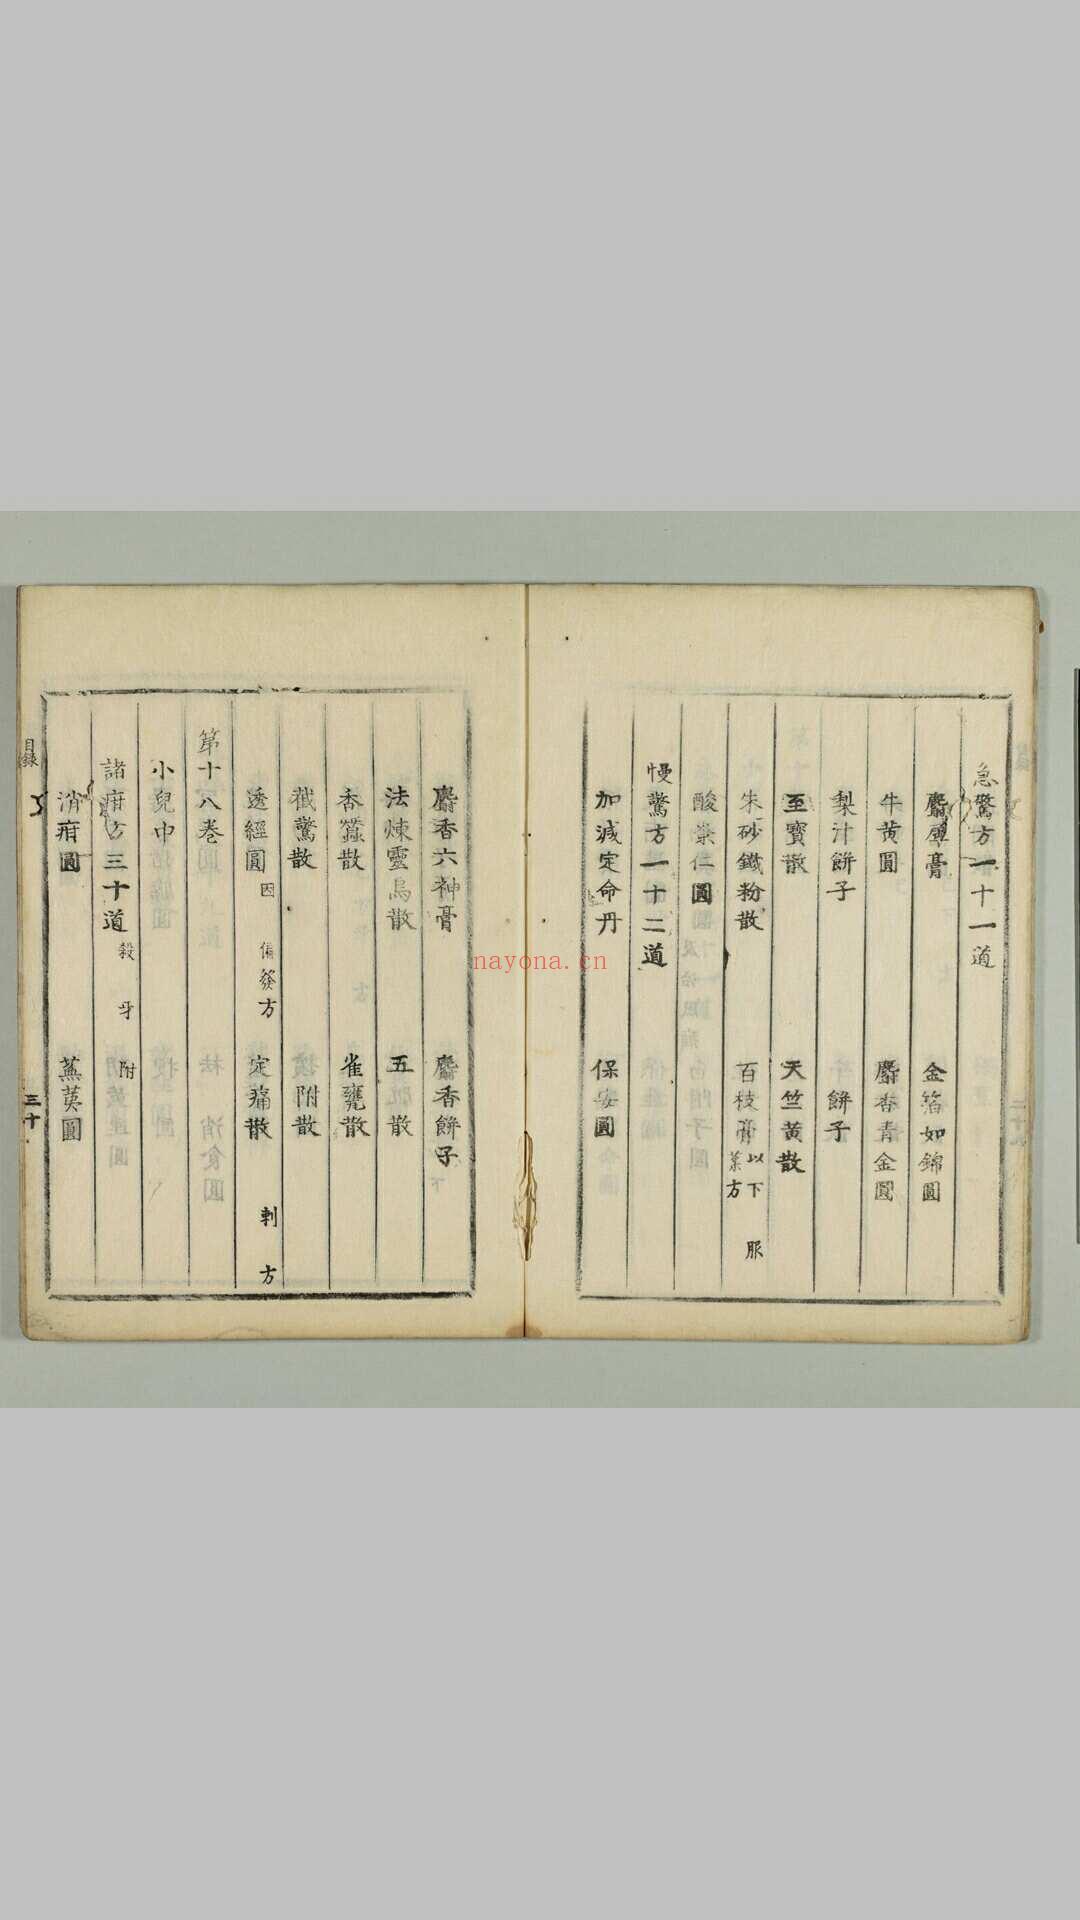 急驚方一十一道
麝䗪膏 金箔如錦圓
牛黄圓 麝香青金圓
梨汁餅子 餅子
至寶散 天竺黄散
朱砂鐵粉散 百枝膏 以下服
方
酸棗仁圓
慢驚方一十二道
加減定命丹 保安圓
麝香六神膏 麝香餅子
法煉靈烏散 五散
香蠶散 雀甕散
截驚散 附散
透經圓 因 偏發方 定痛散 刺 方
第十八卷
小兒中
諸疳方三十道 殺 牙 附
消疳圓 蕪荑圓
目録
三十
nayona.cn